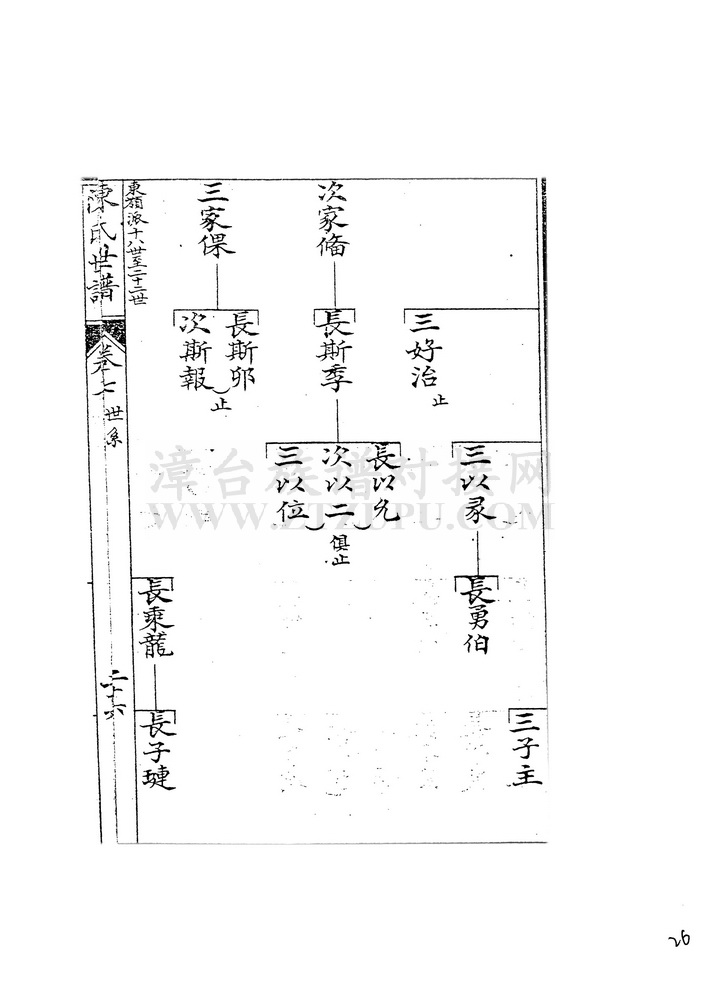 次家俻
三家倮
三好治
止
長斯季
長斯卯
次斯報
止
三以录
長以允
次以二
三以位
俱止
長勇伯
長乘龍
三子主
長子璉
東嶺派十八世至二十二世
陳氏世譜
卷七
世系
二十六
漳台族谱对接网
WWW.ZTZUPU.COM
26